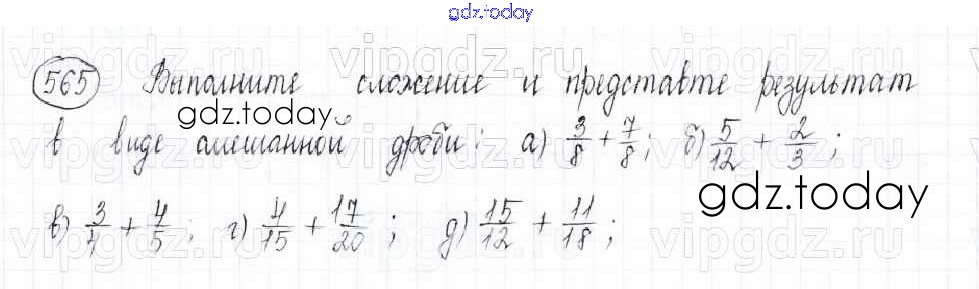 gdz.today
565 Выполните сложение и представте результат
в виде смешанной дроби: а) 3/8 + 7/8; б) 5/12 + 2/3;
в) 3/4 + 4/5; г) 4/15 + 17/20; д) 15/12 + 11/18;
vipgdz.ru vipgdz.ru vipgdz.ru
gdz.today
gdz.today
vipgdz.ru vipgdz.ru vipgdz.ru